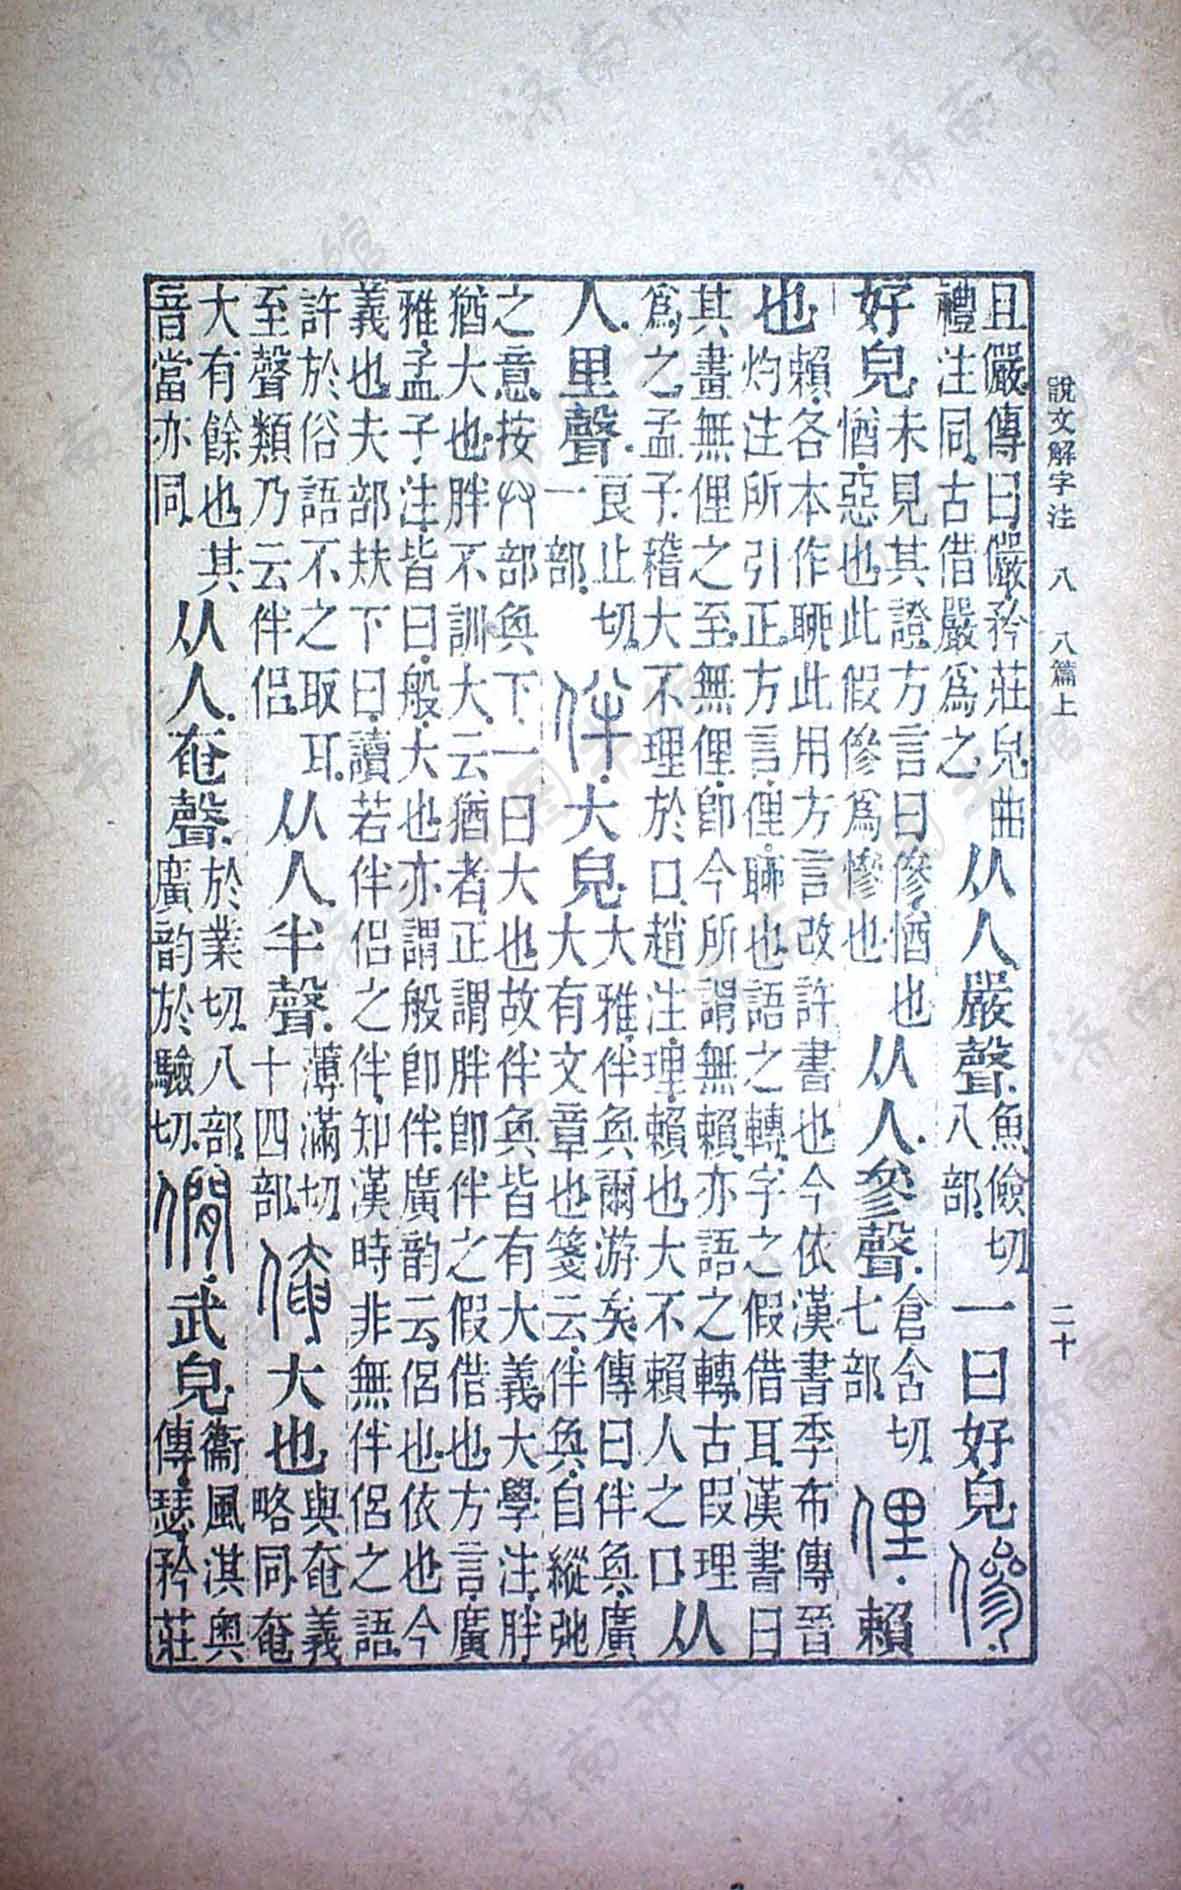 說文解字注 八 八篇上 二十
且儼傳曰儼矜莊皃曲禮注同古借嚴爲之从人嚴聲魚儉切八部一曰好皃傪
好皃未見其證方言曰傪惛也惛惡也此假傪爲慘也从人參聲倉含切七部俚賴
也賴各本作聊此用方言改許書也今依漢書季布傳晉灼注所引正方言俚聊也語之轉字之假借耳漢書曰
其畫無俚之至無俚卽今所謂無賴亦語之轉古叚理爲之孟子稽大不理於口趙注理賴也大不賴人之口从
人里聲良止切一部伴大皃大雅伴奐爾游矣傳曰伴奐廣大有文章也箋云伴奐自縱弛
之意按𠬞部奐下一曰大也故伴奐皆有大義大學注胖猶大也胖不訓大云猶者正謂胖卽伴之假借也方言廣
雅孟子注皆曰般大也亦謂般卽伴廣韵云侶也依也今義也夫部㚘下曰讀若伴侶之伴知漢時非無伴侶之語
許於俗語不之取耳至聲類乃云伴侶从人半聲薄滿切十四部俺大也與奄義略同奄
大有餘也其音當亦同从人奄聲於業切八部廣韵於驗切僩武皃衞風淇奧傳瑟矜莊